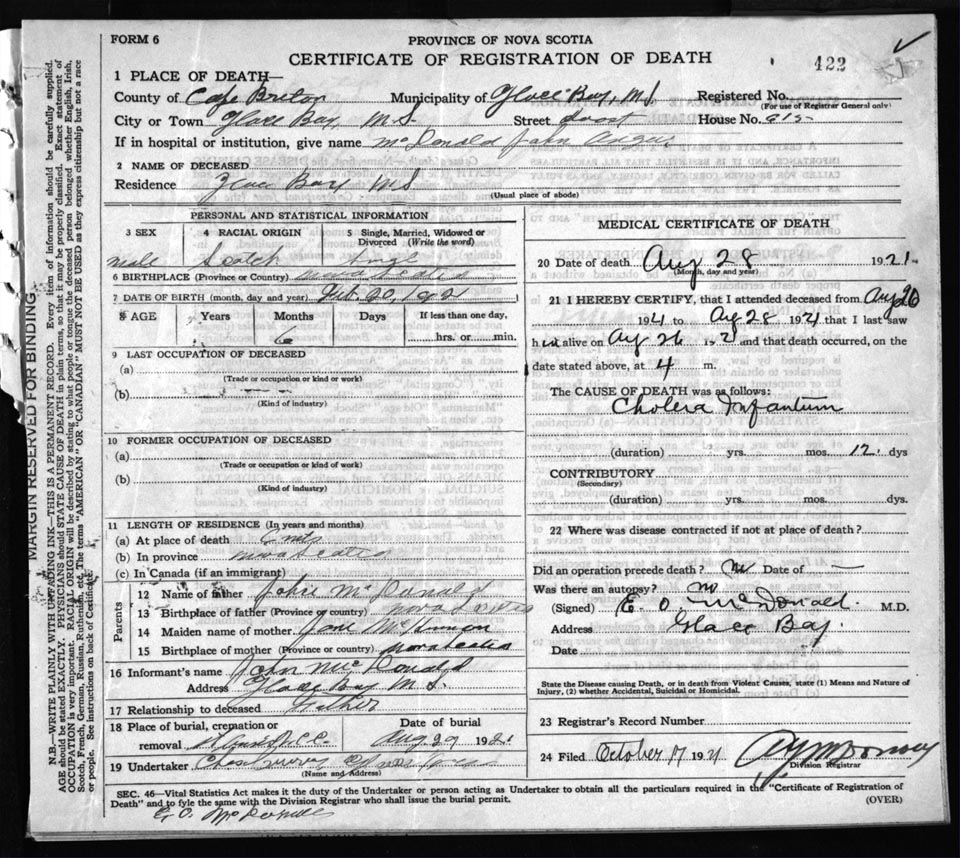 FORM 6
PROVINCE OF NOVA SCOTIA
CERTIFICATE OF REGISTRATION OF DEATH
422
1 PLACE OF DEATH—
County of Cape Breton Municipality of Glace Bay, N.S. Registered No.
(For use of Registrar General only)
City or Town Glace Bay, N.S. Street House No.
If in hospital or institution, give name McDonald John Angus
2 NAME OF DECEASED
Residence Glace Bay N.S.
(Usual place of abode)
PERSONAL AND STATISTICAL INFORMATION
3 SEX 4 RACIAL ORIGIN 5 Single, Married, Widowed or Divorced (Write the word)
male Scotch Single
6 BIRTHPLACE (Province or Country) Nova Scotia
7 DATE OF BIRTH (month, day and year) Feb. 20, 1921
8 AGE Years Months Days If less than one day,
6 hrs. or min.
9 LAST OCCUPATION OF DECEASED
(a)
(Trade or occupation or kind or work)
(b)
(Kind of industry)
10 FORMER OCCUPATION OF DECEASED
(a)
(Trade or occupation or kind of work)
(b)
(Kind of industry)
11 LENGTH OF RESIDENCE (In years and months)
(a) At place of death 6 mts
(b) In province Nova Scotia
(c) In Canada (if an immigrant)
Parents
12 Name of father John McDonald
13 Birthplace of father (Province or country) Nova Scotia
14 Maiden name of mother Jane McKinnon
15 Birthplace of mother (Province or country) Nova Scotia
16 Informant's name John McDonald
Address Glace Bay N.S.
17 Relationship to deceased Father
18 Place of burial, cremation or Date of burial
removal Aug 29 1921
19 Undertaker
(Name and Address)
MEDICAL CERTIFICATE OF DEATH
20 Date of death Aug 28 1921
(Month, day and year)
21 I HEREBY CERTIFY, that I attended deceased from Aug 26
1921 to Aug 28 1921 that I last saw
him alive on Aug 26 1921 and that death occurred, on
date stated above, at 4 m.
The CAUSE OF DEATH was as follows:
Cholera Infantum
(duration) yrs. mos. 12 dys
CONTRIBUTORY
(Secondary)
(duration) yrs. mos. dys.
22 Where was disease contracted if not at place of death?
Did an operation precede death? No Date of —
Was there an autopsy? No
(Signed) E. O. McDonald. M.D.
Address Glace Bay.
Date
State the Disease causing Death, or in death from Violent Causes, state (1) Means and Nature of
Injury, (2) whether Accidental, Suicidal or Homicidal.
23 Registrar's Record Number
24 Filed October 17 1921
Division Registrar
SEC. 46—Vital Statistics Act makes it the duty of the Undertaker or person acting as Undertaker to obtain all the particulars required in the "Certificate of Registration of
Death" and to fyle the same with the Division Registrar who shall issue the burial permit.
(OVER)
E. O. McDonald
MARGIN RESERVED FOR BINDING
N.B.—WRITE PLAINLY WITH UNFADING INK—THIS IS A PERMANENT RECORD. Every item of information should be carefully supplied.
AGE should be stated EXACTLY. PHYSICIANS should STATE CAUSE OF DEATH in plain terms, so that it may be properly classified. Exact statement of
OCCUPATION is very important. RACIAL ORIGIN will be described by stating to what people or tongue the deceased person belonged whether English, Irish,
Scotch, French, German, Russian, Ruthenian, etc. The terms "AMERICAN" OR "CANADIAN" MUST NOT BE USED as they express citizenship but not a race
or people. See instructions on back of Certificate.